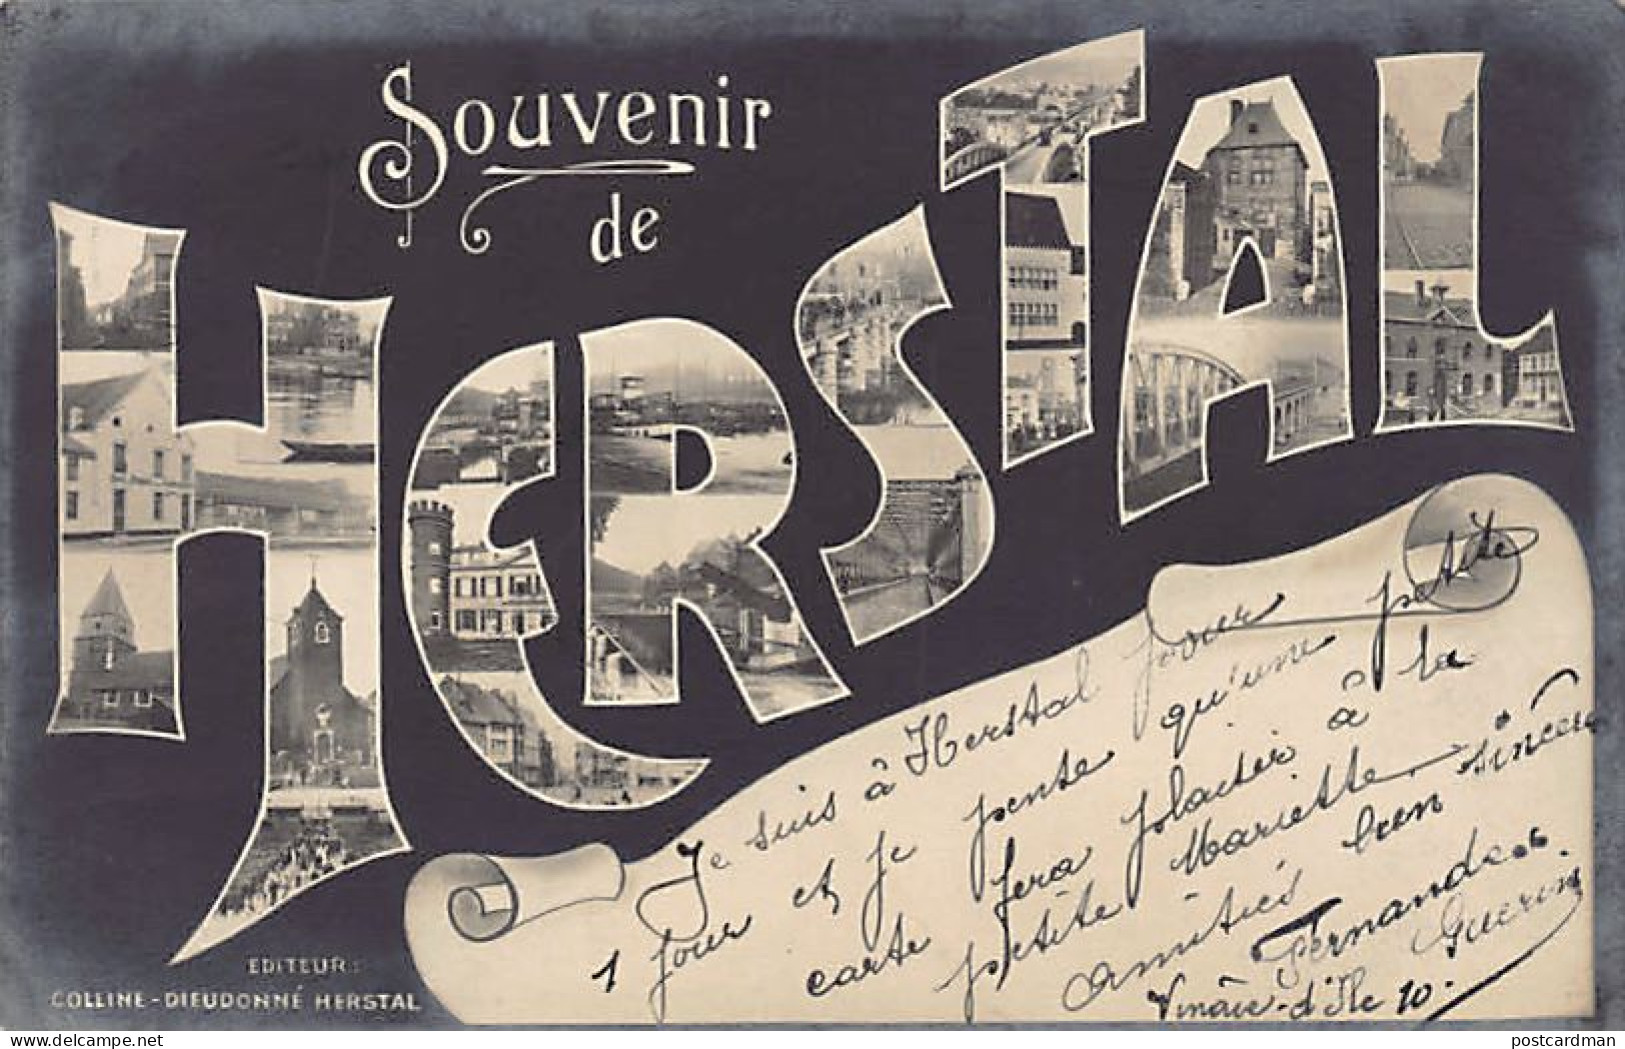 Souvenir
de
HERSTAL
Je suis à Herstal pour
1 jour et je pense qu'une petite
carte fera plaisir à la
petite Mariette
Amitiés bien sincères
Fernandes
Guerin
Vinâve-d'Ile 10.
EDITEUR:
COLLINE-DIEUDONNÉ HERSTAL
delcampe.net
postcardman